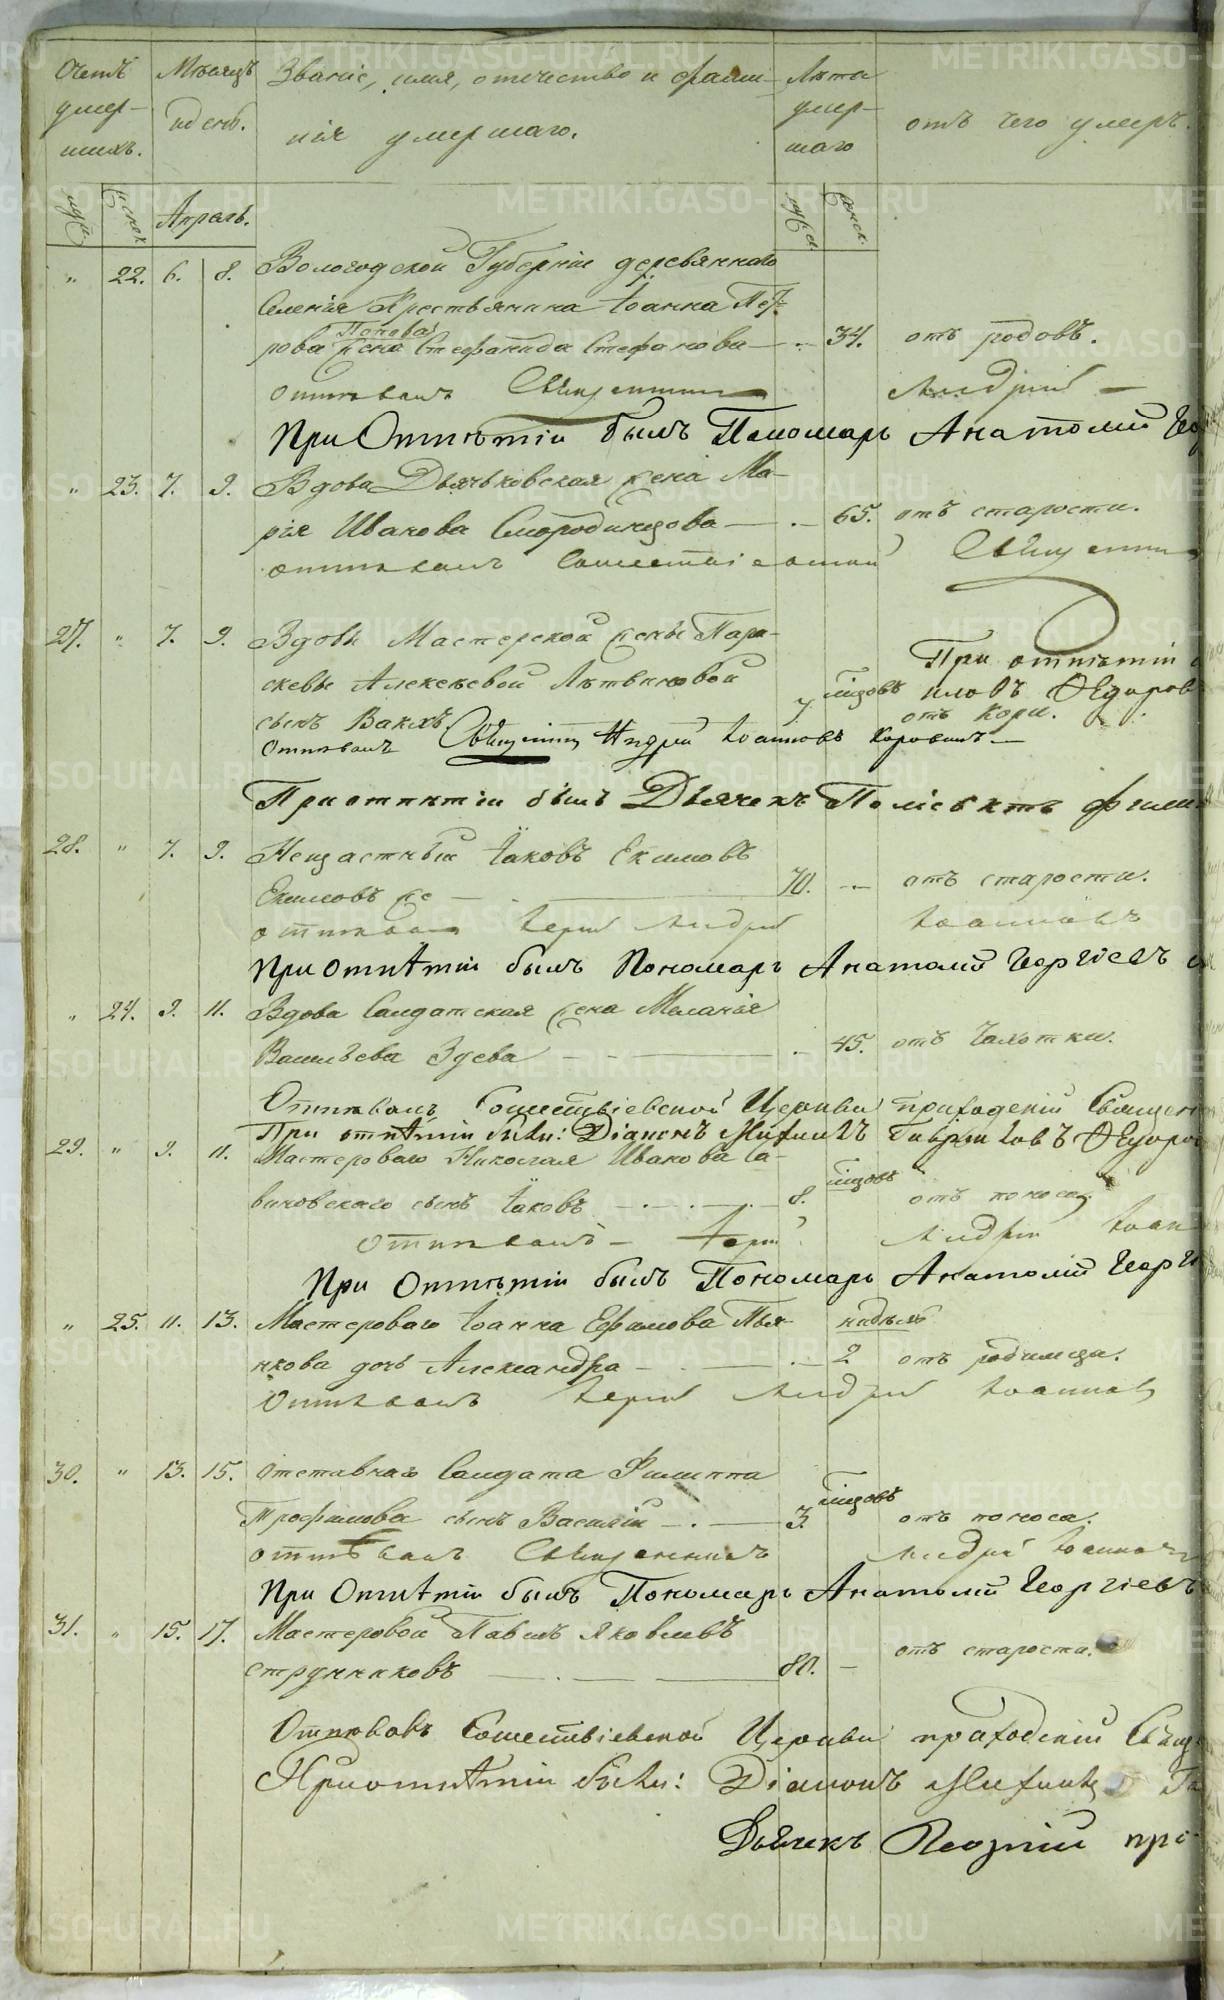 Счетъ умер- шихъ. Мѣсяцъ и день. Званіе, имя, отечество и фами- Лѣта умер- шаго отъ чего умеръ.
лія умершаго.
муж. женск. Апрѣль. муж. женск.
" 22. 6. 8. Вологодской Губерніи деревяннаго
селенія Крестьянина Іоанна Пет-
Попова
рова жена Стефанида Стефанова — 34. отъ родовъ.
отпѣвалъ Священник Андрей
При Отпѣтіи былъ Пономарь Анатолій Гео
" 23. 7. 9. Вдова Дьячьковская жена Ма-
рія Иванова Смородинцова — 65. отъ старости.
отпѣвалъ Сошествіевской Священник
27. " 7. 9. Вдовы Мастерской жены Пара-
скевы Алексѣевой Литвиновой
При отпѣтіи
сынъ Вакхъ. 7 мѣсяцовъ отъ кори.
отпѣвалъ Священник Андрей Іоанновъ Коровинъ —
При отпѣтіи былъ Дьячекъ
28. " 7. 9. Нещастный Іаковъ Екимовъ
Екимовъ же — 70. — отъ старости.
отпѣвалъ Іерей Андрей Іоанновъ
При Отпѣтіи былъ Пономарь Анатолій Георгіевъ
" 24. 9. 11. Вдова Салдатская жена Меланія
Васильева Зуева — 45. отъ чахотки.
Отпѣвалъ Сошествіевской Церкви приходскій Священ
При отпѣтіи были: Діаконъ Михаилъ Гавриловъ Ѳедоро
29. " 9. 11. Мастероваго Николая Иванова Са-
виновскаго сынъ Іаковъ — 8. мѣсяцовъ отъ поноса
Отпѣвалъ — Іерей Андрей Іоан
При Отпѣтіи былъ Пономарь Анатолій Георги
" 25. 11. 13. Мастероваго Іоанна Ефимова Пья- недѣль
нкова дочь Александра — 2 отъ родимца.
Отпѣвалъ Іерей Андрей Іоаннов
30. " 13. 15. Отставнаго Салдата Филиппа
Трофимова сынъ Василій — 3. мѣсяцовъ отъ поноса.
отпѣвалъ Священникъ Андрей Іоаннов
При Отпѣтіи былъ Пономарь Анатолій Георгіевъ
31. " 15. 17. Мастеровой Павелъ Яковлевъ
Струнниковъ — 80. — отъ старости.
Отпѣвалъ Сошествіевской Церкви приходскій Свящ
При отпѣтіи были: Діаконъ Михаилъ Га
Дьячекъ при
METRIKI.GASO-URAL.RU